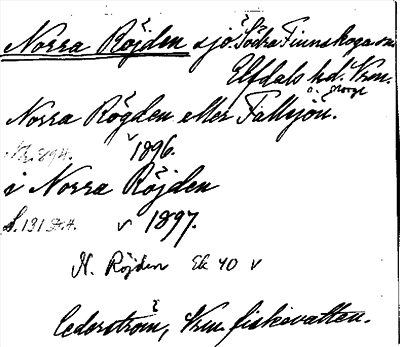 Norra Röjden sjö Södra Finnskoga sn
Elfdals hd. Vrm.
o. Norge
Norra Rögden eller Fallsjön.
v 1896.
i Norra Röjden
S. 131 v 1897.
N. Röjden Ek 40 v
Cederström, Vrm. fiskevatten.